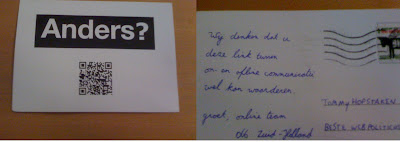 Anders?
Wij denken dat u
deze link tussen
on- en offline communicatie
wel kon waarderen.
groet, online team
Tommy HOFSTEKEN
BESTE WEBPOLITICUS